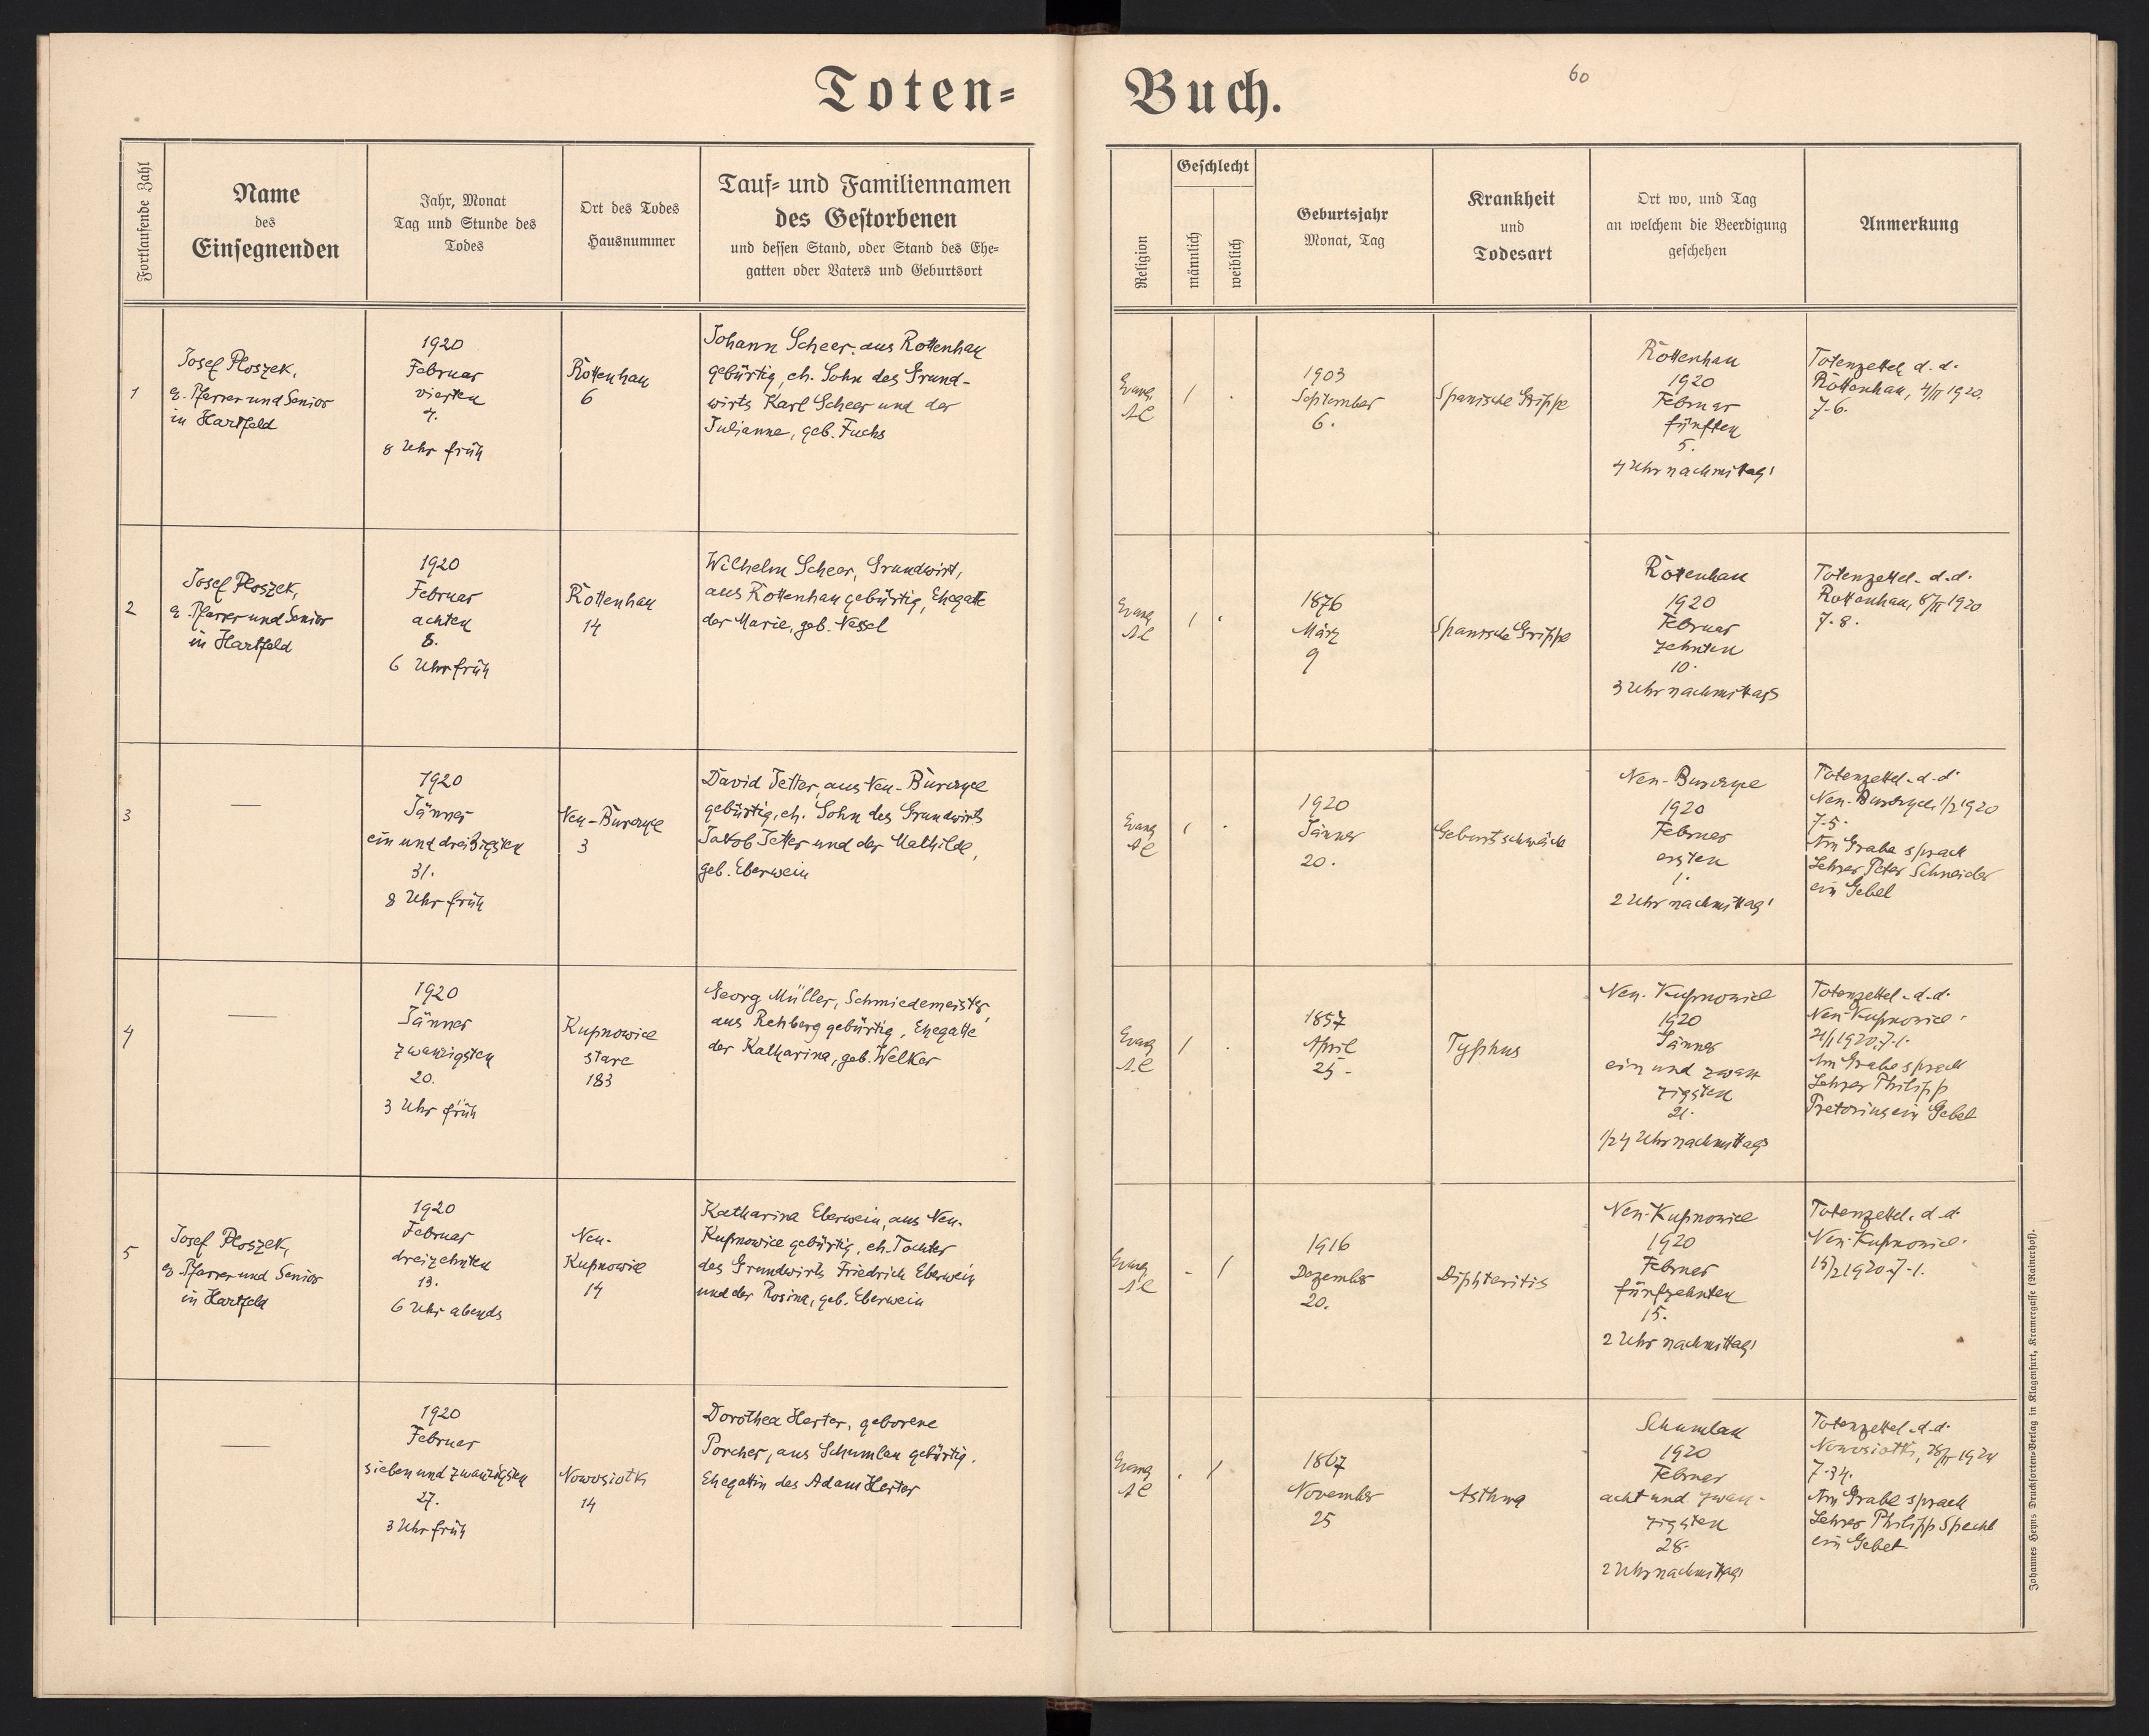 Toten=
Buch.
60
Fortlaufende Zahl
Name
des
Einsegnenden
Jahr, Monat
Tag und Stunde des
Todes
Ort des Todes
Hausnummer
Tauf= und Familiennamen
des Gestorbenen
und dessen Stand, oder Stand des Ehe=
gatten oder Vaters und Geburtsort
Religion
Geschlecht
männlich
weiblich
Geburtsjahr
Monat, Tag
Krankheit
und
Todesart
Ort wo, und Tag
an welchem die Beerdigung
geschehen
Anmerkung
1
Josef Ploszek,
ev. Pfarrer und Senior
in Hartfeld
1920
Februar
vierten
4.
8 Uhr früh
Rottenhan
6
Johann Scheer, aus Rottenhan
gebürtig, eh. Sohn des Grund-
wirts Karl Scheer und der
Julianne, geb. Fuchs
Evang.
A.C
1
.
1903
September
6.
Spanische Grippe
Rottenhan
1920
Februar
fünften
5.
4 Uhr nachmittag'
Totenzettel d.d.
Rottenhan, 4/II 1920.
7-6.
2
Josef Ploszek,
ev. Pfarrer und Senior
in Hartfeld
1920
Februar
achten
8.
6 Uhr früh
Rottenhan
14
Wilhelm Scheer, Grundwirt,
aus Rottenhan gebürtig, Ehegatte
der Marie, geb. Nessel
Evang
A.C
1
.
1876
März
9
Spanische Grippe
Rottenhan
1920
Februar
zehnten
10.
3 Uhr nachmittags
Totenzettel. d.d.
Rottenhan, 8/II 1920
7-8.
3
—
1920
Jänner
ein und dreißigsten
31.
8 Uhr früh
Neu-Burczyce
3
David Jetter, aus Neu-Burczyce
gebürtig, eh. Sohn des Grundwirts
Jakob Jetter und der Mathilde,
geb. Eberwein
Evang
A.C
1
.
1920
Jänner
20.
Geburtschwäche
Neu-Burczyce
1920
Februar
ersten
1.
2 Uhr nachmittag'
Totenzettel. d.d.
Neu-Burczyce 1/2 1920
7-5.
Am Grabe sprach
Lehrer Peter Schneider
ein Gebet
4
—
1920
Jänner
zwanzigsten
20.
3 Uhr früh
Kupnowice
stare
183
Georg Müller, Schmiedemeister,
aus Rehberg gebürtig, Ehegatte
der Katharina, geb. Welker
Evang
A.C
1
.
1857
April
25.
Typhus
Neu-Kupnowice
1920
Jänner
ein und zwan
zigsten
21.
1/2 4 Uhr nachmittags
Totenzettel. d.d.
Neu-Kupnowice.
21/I 1920. 7-1.
Am Grabe sprach
Lehrer Philipp
Pretorius ein Gebet
5
Josef Ploszek,
ev. Pfarrer und Senior
in Hartfeld
1920
Februar
dreizehnten
13.
6 Uhr abends
Neu-
Kupnowice
14
Katharina Eberwein, aus Neu-
Kupnowice gebürtig, eh. Tochter
des Grundwirts Friedrich Eberwein
und der Rosina, geb. Eberwein
Evang
A.C
-
1
1916
Dezember
20.
Diphteritis
Neu-Kupnowice
1920
Februar
fünfzehnten
15.
2 Uhr nachmittag'
Totenzettel. d.d.
Neu-Kupnowice.
15/2 1920. 7-1.
—
1920
Februar
sieben und zwanzigsten
27.
3 Uhr früh
Nowosiolki
14
Dorothea Herter, geborene
Porcher, aus Schumlau gebürtig.
Ehegattin des Adam Herter
Evang
A.C
.
1
1867
November
25
Asthma
Schumlau
1920
Februar
acht und zwan-
zigsten
28.
2 Uhr nachmittag'
Totenzettel. d.d.
Nowosiolki, 28/II 1920
7-34.
Am Grabe sprach
Lehrer Philipp Specht
ein Gebet
Johannes Heyns Drucksorten=Verlag in Klagenfurt, Kramergasse (Rainerhof).